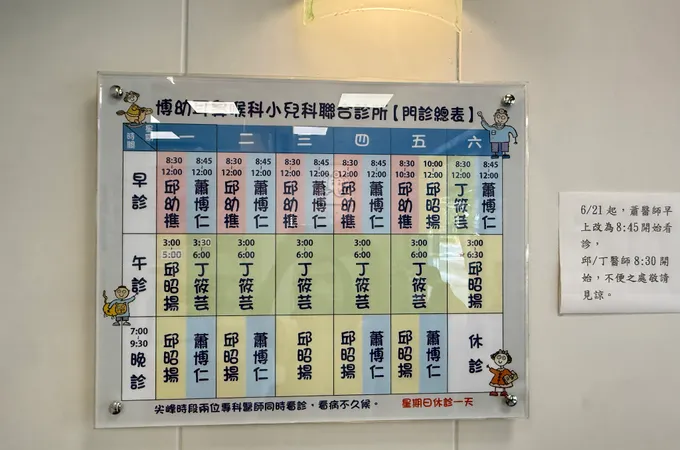 博幼耳鼻喉科小兒科聯合診所【門診總表】
星期 時間 一 二 三 四 五 六
早診
8:30 8:45 8:30 8:45 8:30 8:45 8:30 8:45 8:30 10:00 8:30 8:45
12:00 12:00 12:00 12:00 12:00 12:00 12:00 12:00 10:30 12:00 12:00 12:00
邱幼樵 蕭博仁 邱幼樵 蕭博仁 邱幼樵 蕭博仁 邱幼樵 蕭博仁 邱幼樵 邱昭揚 丁筱芸 蕭博仁
午診
3:00 3:30 3:00 3:00 3:00 3:00 3:00
5:00 6:00 6:00 6:00 6:00 6:00 6:30
邱昭揚 丁筱芸 丁筱芸 丁筱芸 丁筱芸 丁筱芸 邱昭揚
7:00
9:30
晚診
邱昭揚 蕭博仁 邱昭揚 蕭博仁 邱昭揚 邱昭揚 蕭博仁 邱昭揚 蕭博仁 休診
尖峰時段兩位專科醫師同時看診，看病不久候。 星期日休診一天
6/21起，蕭醫師早
上改為8:45開始看
診，
邱/丁醫師8:30開
始，不便之處敬請
見諒。